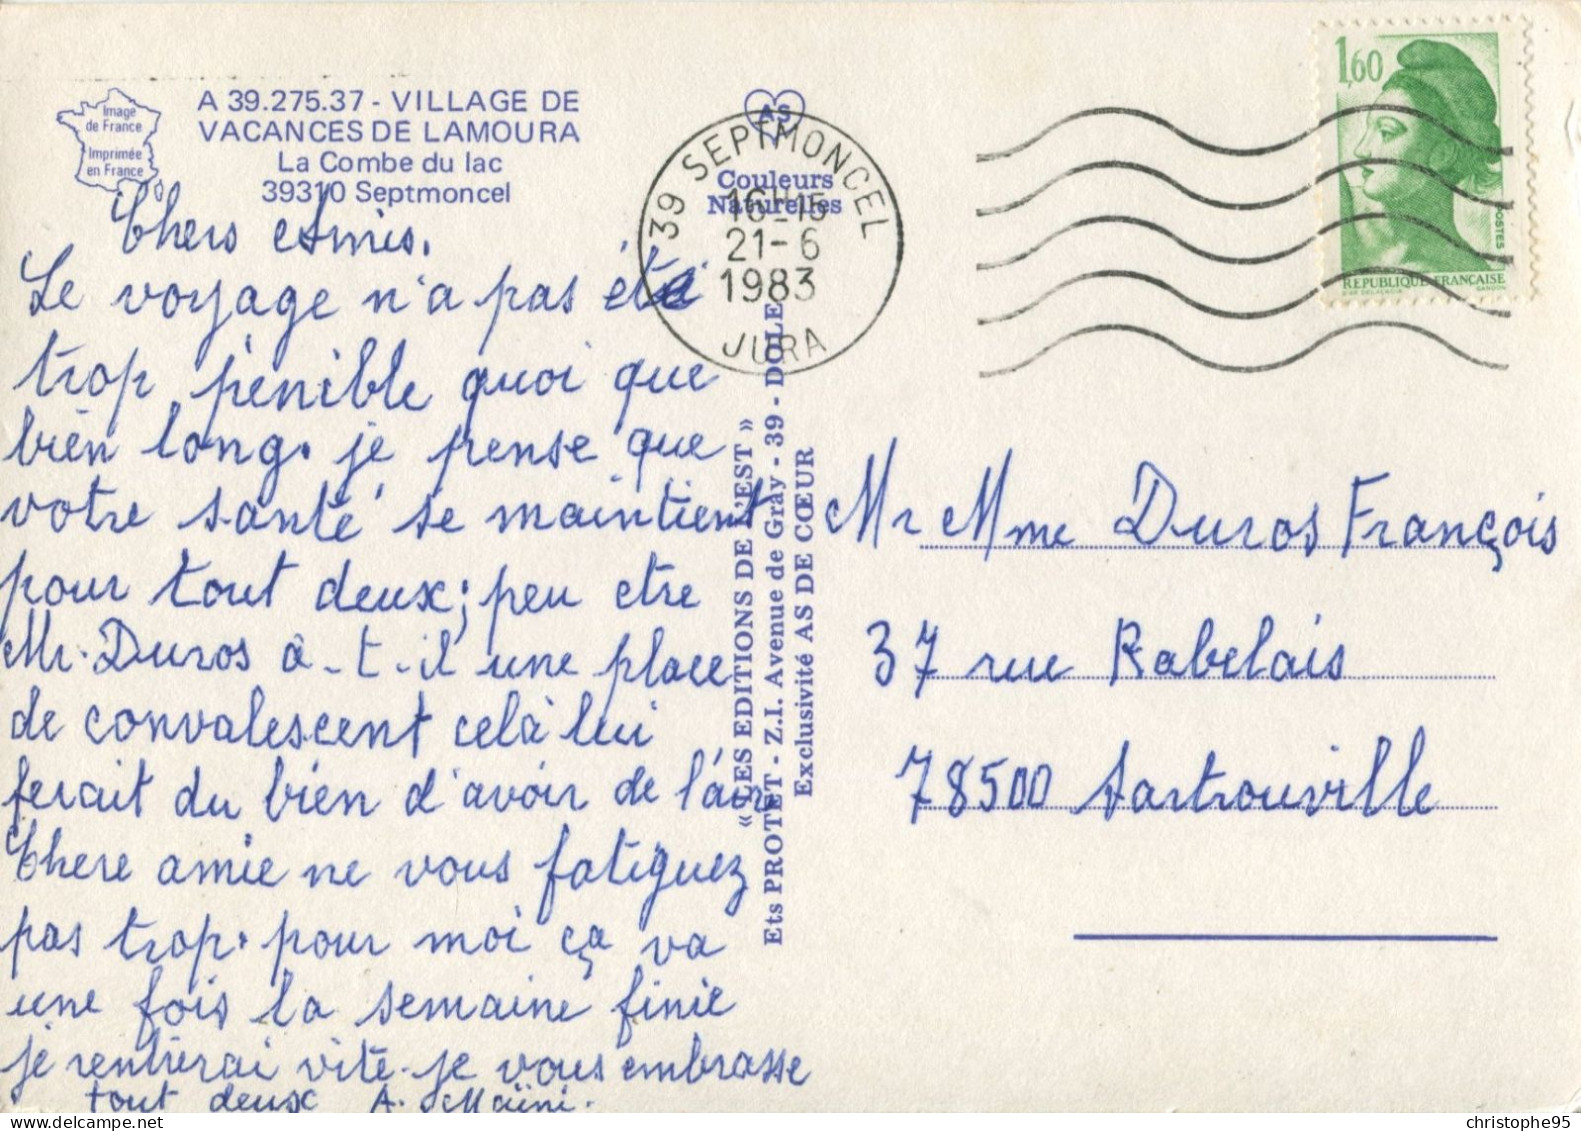 Image
de France
Imprimée
en France
A 39.275.37 - VILLAGE DE
VACANCES DE LAMOURA
La Combe du lac
39310 Septmoncel
Chers Amis.
Le voyage n'a pas été
trop pénible quoi que
bien long. je pense que
votre santé se maintient
pour tout deux; peu etre
Mr. Duros à-t-il une place
de convalescent celà lui
ferait du bien d'avoir de l'air
Chere amie ne vous fatiguez
pas trop. pour moi ça va
une fois la semaine finie
je rentrerai vite. je vous embrasse
tout deux A.
AS
Couleurs
Naturelles
39 SEPTMONCEL
16H15
21-6
1983
JURA
« LES EDITIONS DE L'EST »
Ets PROTET - Z.I. Avenue de Gray - 39 - DOLE
Exclusivité AS DE CŒUR
1,60
POSTES
REPUBLIQUE FRANÇAISE
D'AP. DELACROIX GANDON
Mr Mme Duros François
37 rue Rabelais
78500 Sartrouville
christophe95